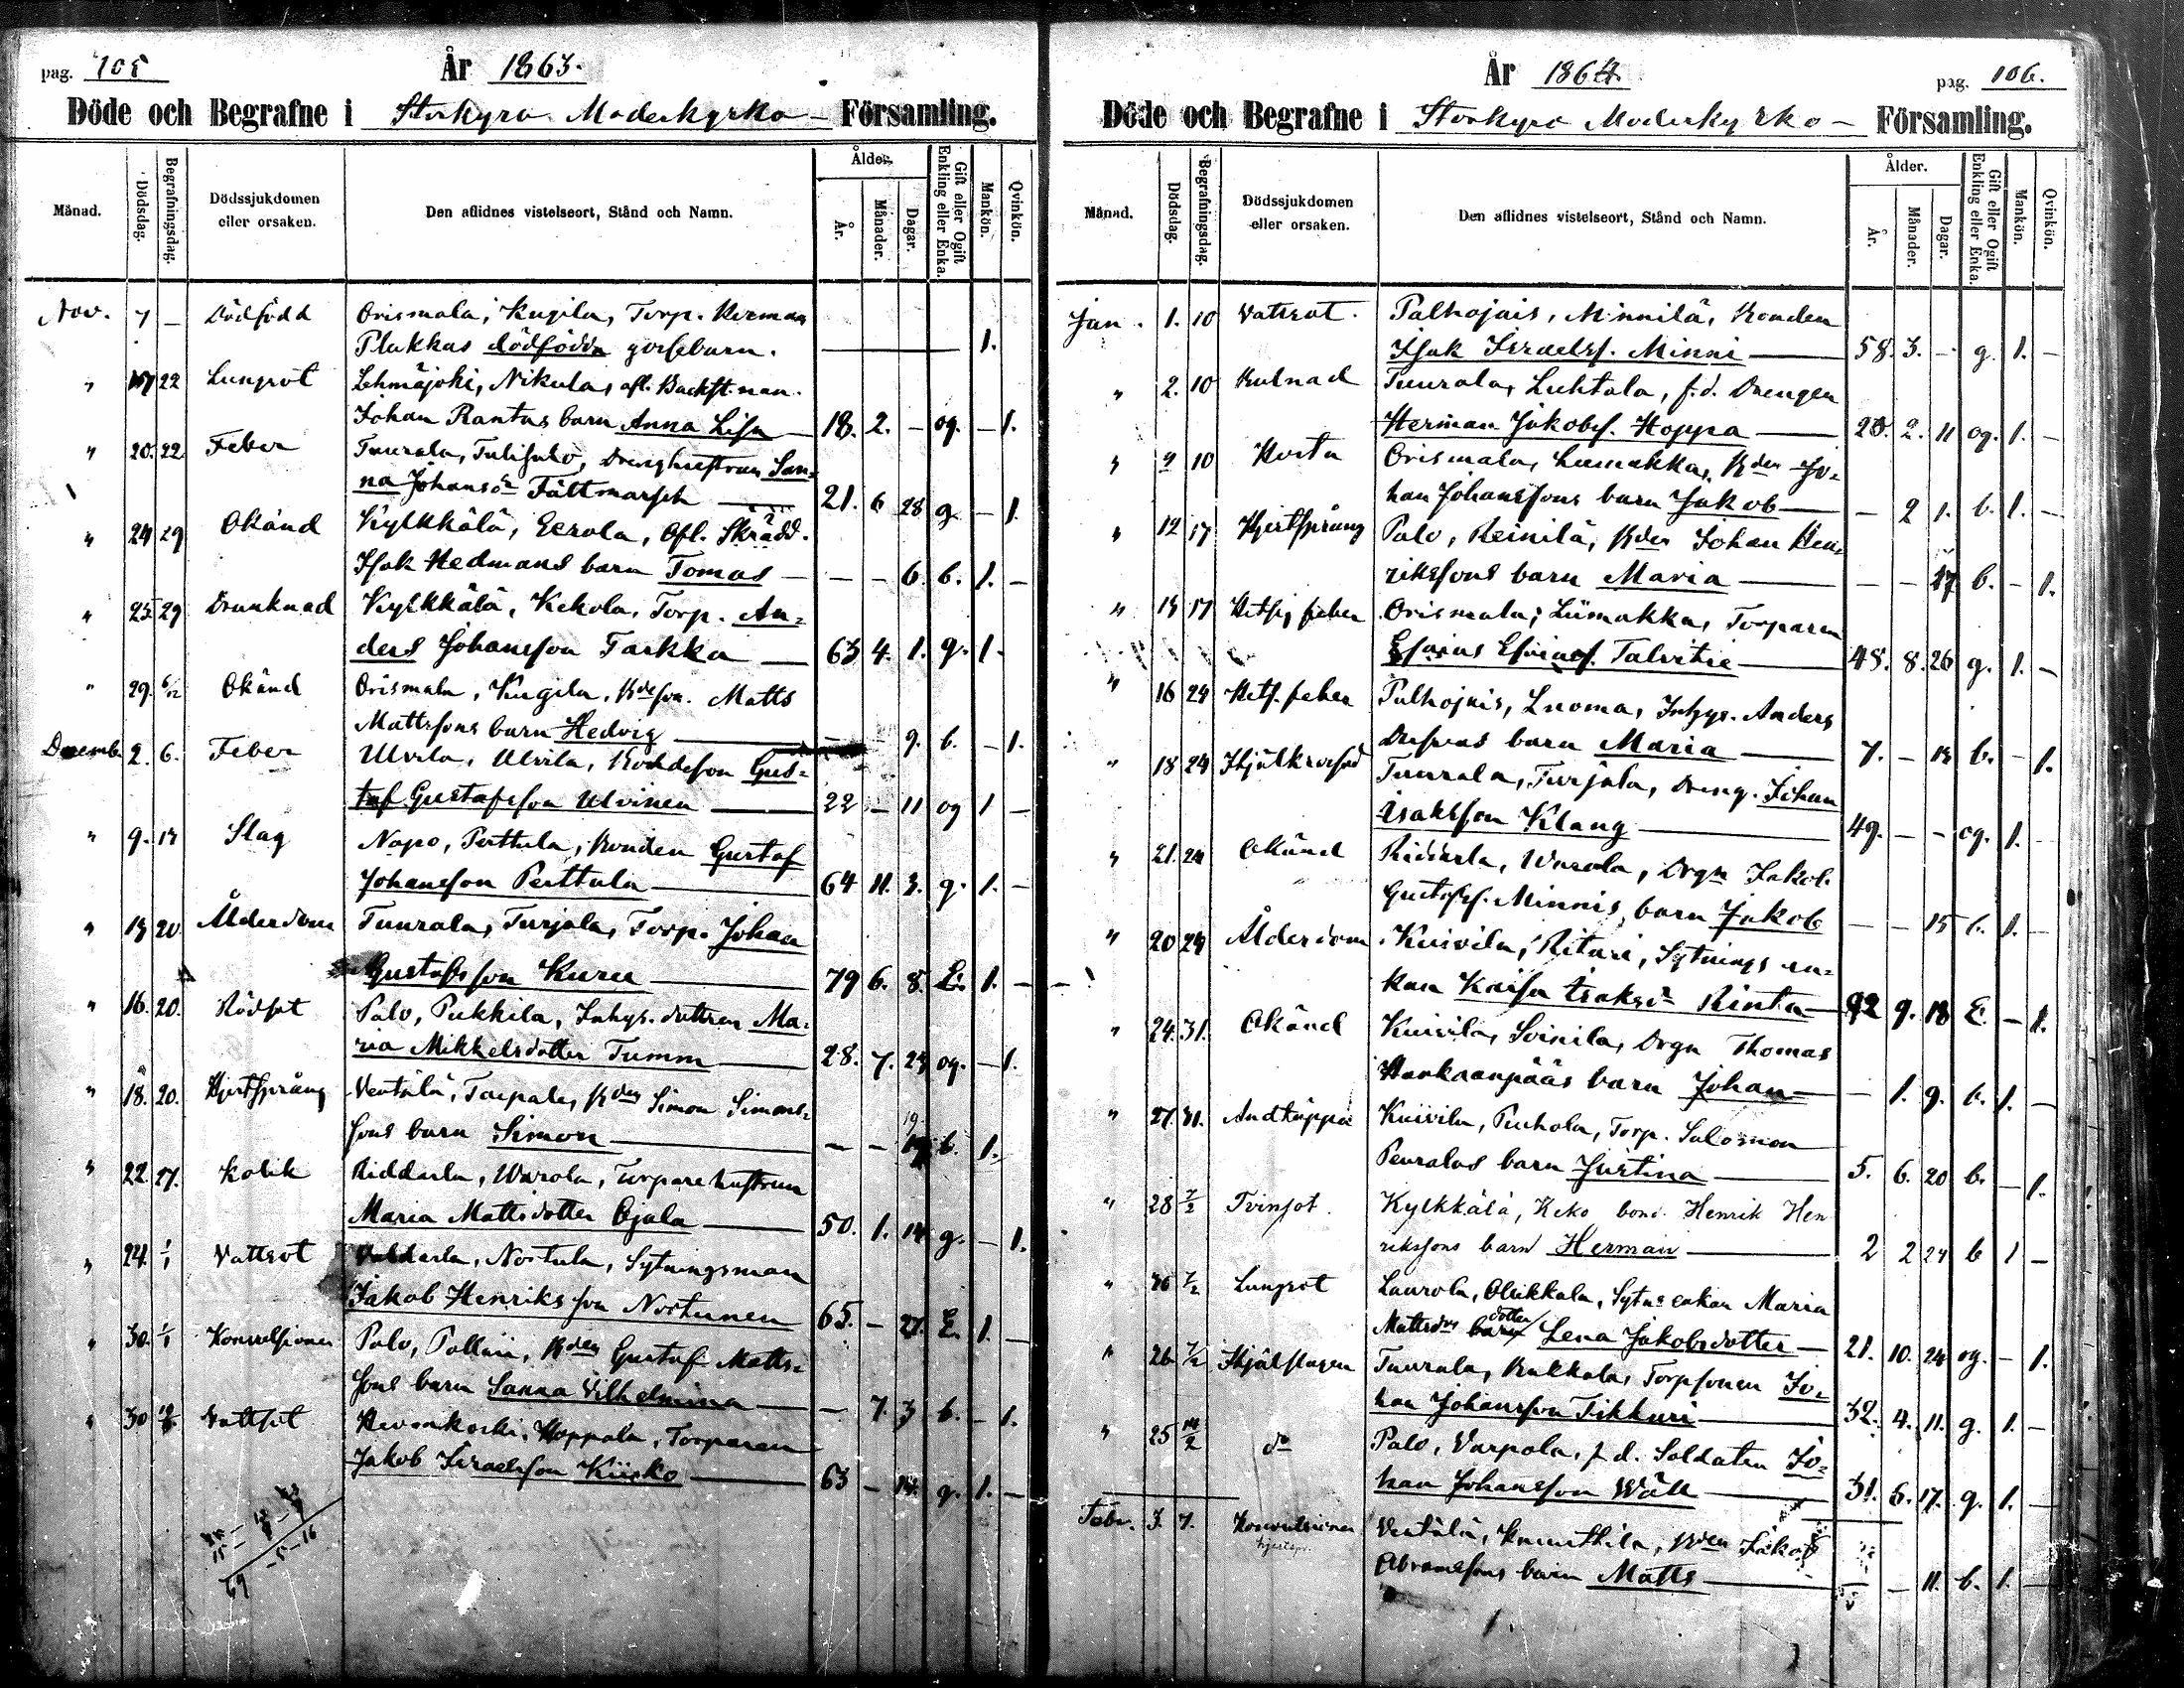 pag. 105
År 1863.
Döde och Begrafne i Storkyro Moderkyrko- Församling.
Månad. Dödsdag. Begrafningsdag. Dödssjukdomen eller orsaken. Den aflidnes vistelseort, Stånd och Namn. Ålder. År. Månader. Dagar. Gift eller Ogift Enkling eller Enka. Mankön. Qvinkön.
Nov. 7 — Dödfödd Orismala, Kugila, Torp. Herman
Plukkas dödfödda gossebarn. 1.
" 17 22 Lungsot Lehmäjoki, Nikula, afl. Backst.man
Johan Rantas barn Anna Lisa 18. 2. — og. — 1.
" 20. 22. Feber Tuurala, Drenghustrun San-
na Johansdr Fältmarsch 21. 6 28 g — 1.
" 24 29 Okänd Kylkkälä, Eerola, Afl. Skrädd.
Isak Hedmans barn Tomas — — — 6. b. 1. —
" 25. 29 Drunknad Kylkkälä, Kekola, Torp. An-
ders Johansson Tarkka 63 4. 1. g. 1.
" 29. 6/12 Okänd Orismala, Kugila, Bdeson. Matts
Mattssons barn Hedvig — — 9. b. — 1.
Decemb. 2. 6. Feber Ulvila, Ulvila, Bondeson Gus-
taf Gustafsson Ulvinen 22 — 11 og 1 —
" 9. 13 Slag Napo, Perttula, Bonden Gustaf
Johansson Perttula 64 11. 3. g. 1. —
" 13 20. Ålderdom Tuurala, Turjala, Torp. Johan
Gustafsson Kuru 79 6. 8. E. 1. —
" 16. 20. Rödsot Palo, Pukkila, Inhys. dottren Ma-
ria Mikkelsdotter Tumm 28. 7. 23 og. — 1.
" 18. 20. Hjertsprång Ventälä, Torpala, Bden Simon Simons-
sons barn Simon — — 19. b. 1.
" 22. 27. Kolik Riddarla, Warola, Torpare hustrun
Maria Mattsdotter Ojala 50. 1. 14 g. — 1.
" 24. 1/1 Vattsot Valdarla, Nortula, Sytningsman
Jakob Henriksson Nortunen 65. — 27. E. 1. —
" 30. 1/1 Konvulsioner Palo, Pollari, Bden Gustaf Matts-
sons barn Sanna Vilhelmina — 7. 3 b. — 1.
" 30 Vattsot Hevonkoski, Hoppala, Torparen
Jakob Israelsson Kiisko 63 — 14. g. 1. —
69 — 5 — 16
pag. 106.
År 1864.
Döde och Begrafne i Storkyro Moderkyrko- Församling.
Månad. Dödsdag. Begrafningsdag. Dödssjukdomen eller orsaken. Den aflidnes vistelseort, Stånd och Namn. Ålder. År. Månader. Dagar. Gift eller Ogift Enkling eller Enka. Mankön. Qvinkön.
Jan. 1. 10 Vattsot. Palhojais, Minnilä, Bonden
Isak Israelss. Minni 58. 3. — g. 1. —
" 2. 10 Tuurala, Luhtala, f.d. Drengen
Herman Jakobs. Hoppa 20. 2. 11 og. 1. —
" 9 10 Hosta Orismala, Liimakka, Bden Jo-
han Johanssons barn Jakob — 2 1. b. 1. —
" 12 17 Hjertsprång Palo, Reinilä, Bden Johan Hen-
rikssons barn Maria — — 17 b. — 1.
" 13 17 Hetsig feber Orismala, Liimakka, Torparen
Esaias Esaias. Talvitie 48. 8. 26 g. 1. —
" 16 24 Hets. feber Palhojais, Luoma, Inhys. Anders
barn Maria 7. — 13 b. — 1.
" 18 24 Tuurala, Turjala, Dreng. Johan
Isaksson Klang 49. — — og. 1. —
" 21. 24 Okänd Riddarla, Warola, Drgn Jakob
Gustafss. Minnis barn Jakob — — 15 b. 1. —
" 20 24 Ålderdom Kuivila, Ritari, Sytnings en-
kan Kaisa Isaksdr Rinta 92 9. 18 E. — 1.
" 24. 31. Okänd Kuivila, Soinila, Drgn Thomas
Hankaanpääs barn Johan — 1. 9. b. 1. —
" 27. 31. Andtäppa Kuivila, Puhola, Torp. Salomon
Peuralas barn Justina 5. 6. 20 b. — 1.
" 28 7/2 Tvinsot. Kylkkälä, Keko bond. Henrik Hen
rikssons barn Herman 2 2 24 b 1 —
" 7/2 Lungsot Laurola, Olikkala, Sytn. enkan Maria
Mattsdrs dotter Lena Jakobsdotter 21. 10. 24 og. — 1.
" 26 7/2 Ihjälslagen Tuurala, Kukkola, Torpsonen Jo-
han Johansson Tikkuri 32. 4. 11. g. 1. —
" 25 14/2 do Palo, Varpola, f.d. Soldaten Jo-
han Johansson Wäll 31. 6. 17. g. 1. —
Febr. 3. 7. Konvulsioner Ventälä, Knuuttila, Bden Jakob
hjertspr.
Abramssons barn Matts — — 11. b. 1. —